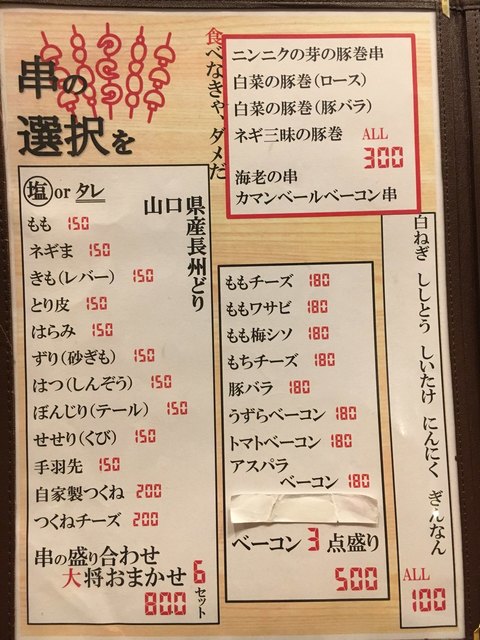 串の
選択を
食べなきゃ、ダメだ
ニンニクの芽の豚巻串
白菜の豚巻(ロース)
白菜の豚巻(豚バラ)
ネギ三昧の豚巻 ALL
300
海老の串
カマンベールベーコン串
塩 or タレ
山口県産長州どり
もも 150
ネギま 150
きも(レバー) 150
とり皮 150
はらみ 150
ずり(砂ぎも) 150
はつ(しんぞう) 150
ぼんじり(テール) 150
せせり(くび) 150
手羽先 150
自家製つくね 200
つくねチーズ 200
串の盛り合わせ
大将おまかせ 6セット
800
ももチーズ 180
ももワサビ 180
もも梅シソ 180
もちチーズ 180
豚バラ 180
うずらベーコン 180
トマトベーコン 180
アスパラ
ベーコン 180
ベーコン 3 点盛り
500
白ねぎ ししとう しいたけ にんにく ぎんなん
ALL
100